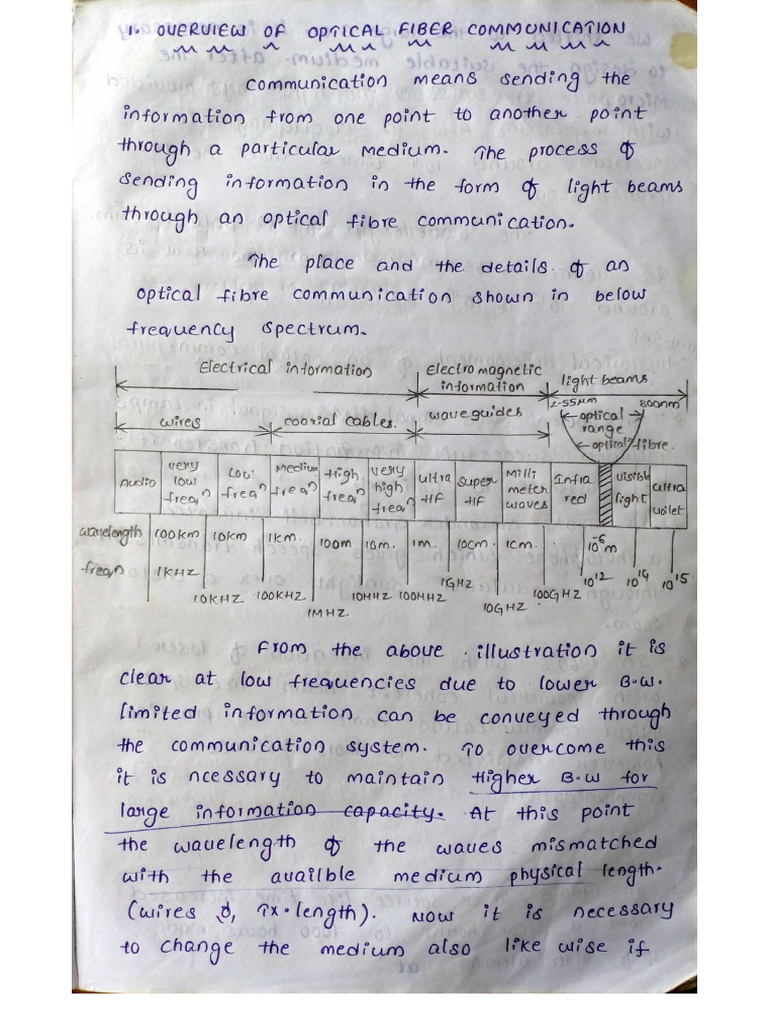 1. OVERVIEW OF OPTICAL FIBER COMMUNICATION
communication means sending the
information from one point to another point
through a particular medium. The process of
sending information in the form of light beams
through an optical fibre communication.
The place and the details of an
optical fibre communication shown in below
frequency spectrum.
Electrical information
electromagnetic
information
light beams
2.55μm
800nm
wires
coaxial cables.
waveguides
optical
range
optical fibre.
Audio
very
low
freqn
Low
freqn
Medium
freqn
High
freqn
very
high
freqn
ultra
HF
super
HF
Milli
meter
waves
Infra
red
visible
light
ultra
voilet
wavelength
100km
10km
1km.
100m
10m.
1m.
10cm.
1cm.
10⁻⁶m
freqn
1KHZ
10KHZ
100KHZ
1MHZ
10MHZ
100MHZ
1GHZ
10GHZ
100GHZ
10¹²
10¹⁴
10¹⁵
From the above illustration it is
clear at low frequencies due to lower B.W.
limited information can be conveyed through
the communication system. To overcome this
it is ncessary to maintain Higher B.W for
large information capacity. At this point
the wavelength of the waves mismatched
with the availble medium physical length.
(wires Tx.length). Now it is necessary
to change the medium also like wise if